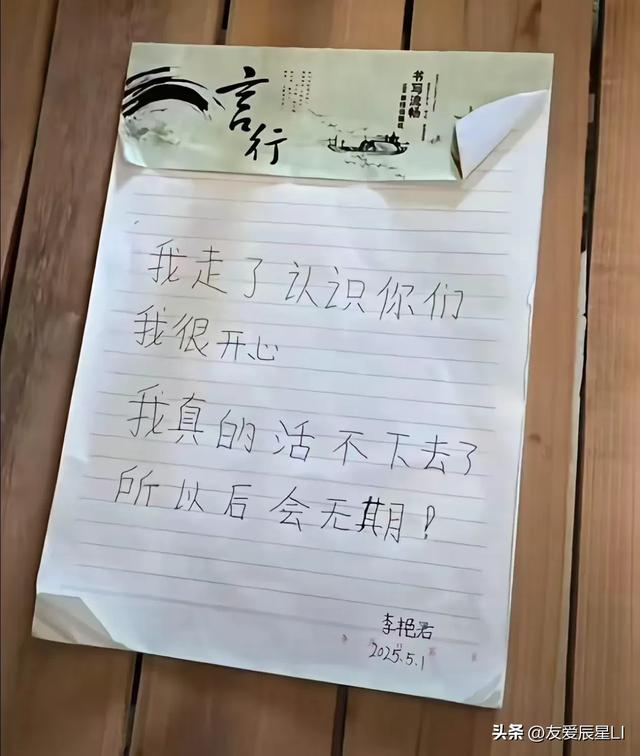 言行
书写流畅
我走了认识你们
我很开心
我真的活不下去了
所以后会无期!
李艳君
2025.5.1
头条 @友爱辰星LI